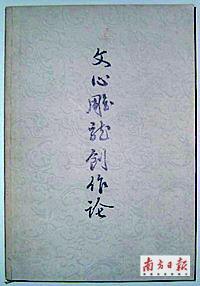 文心雕龍創作論
南方日報